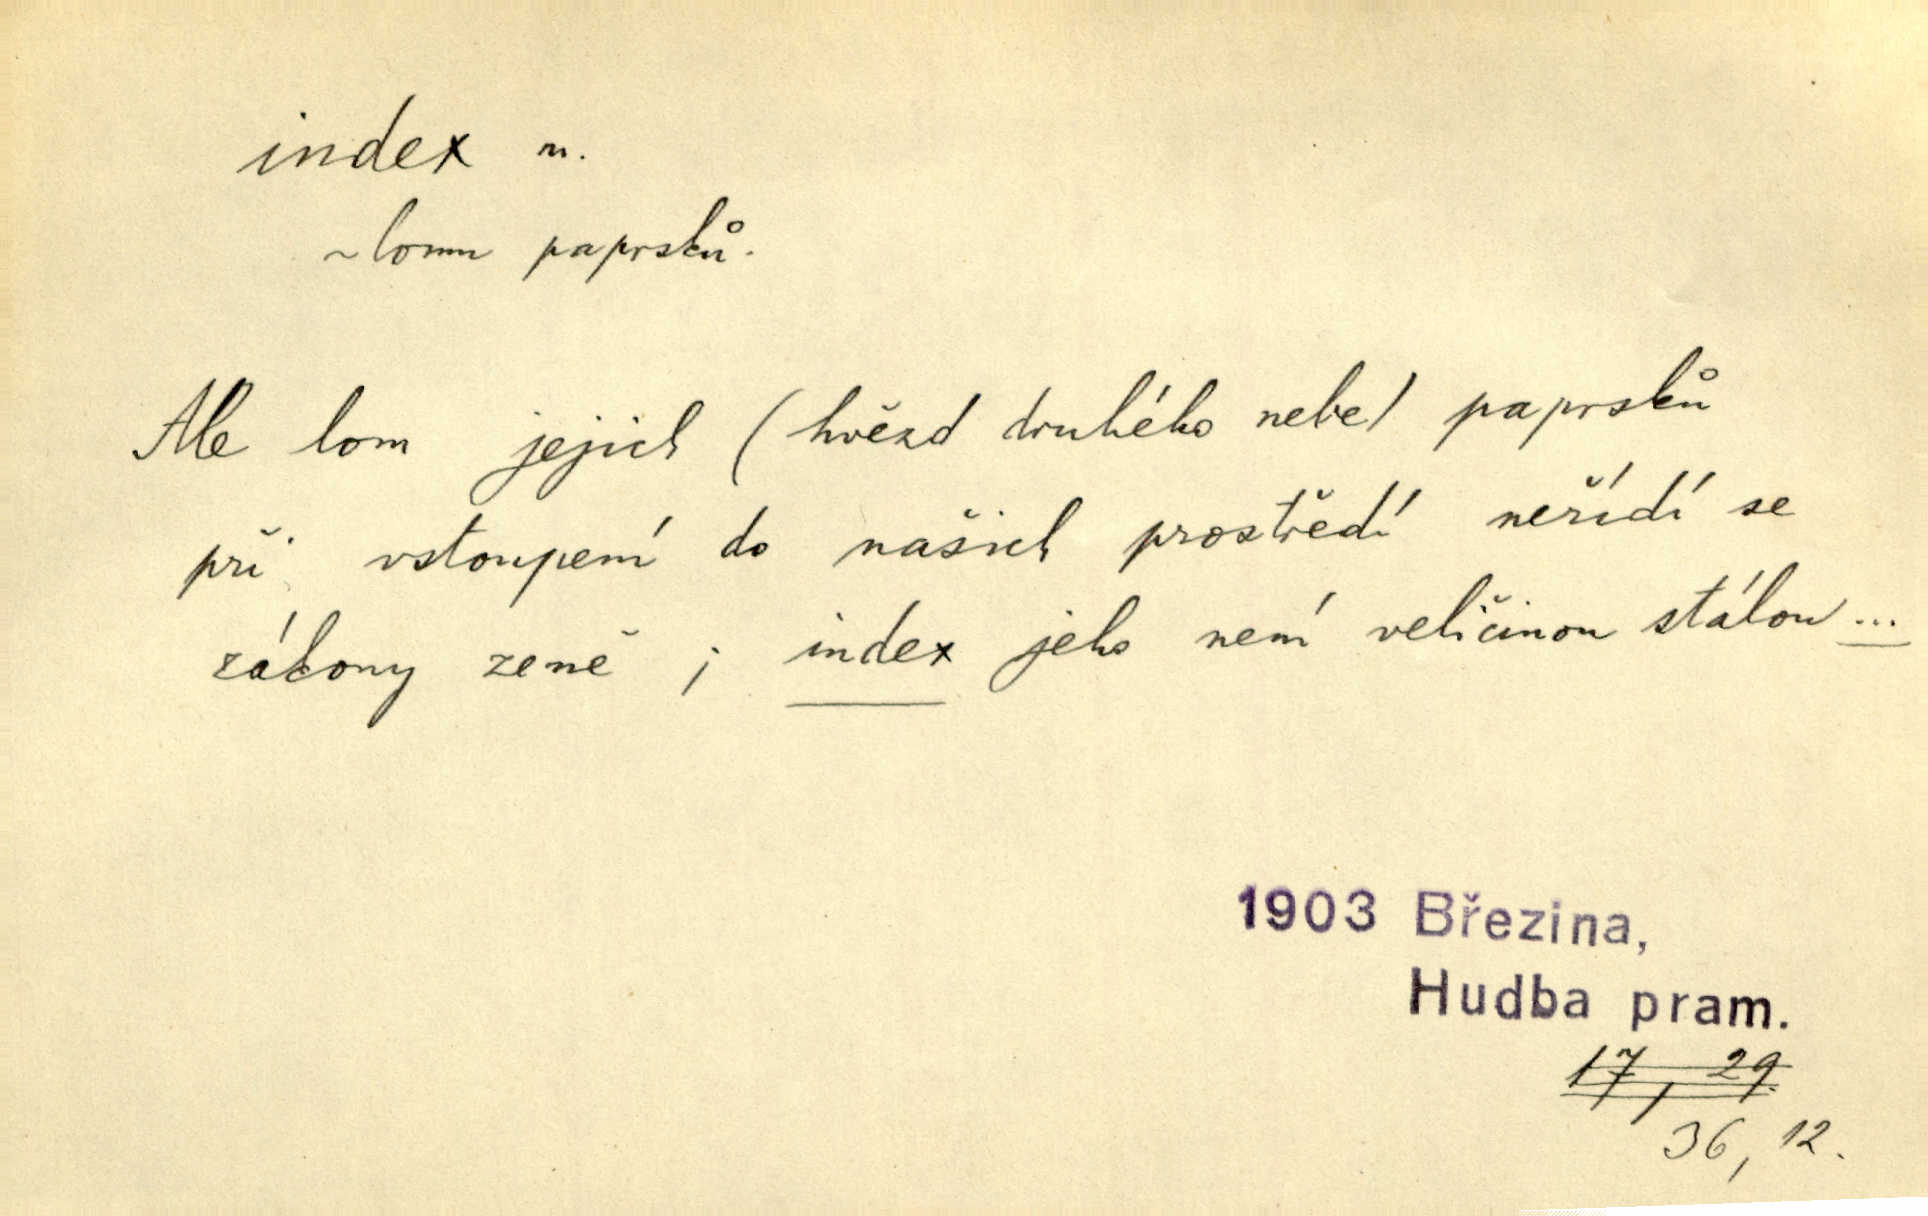 index m.
~ lomu paprsků.
Ale lom jejich (hvězd druhého nebe) paprsků
při vstoupení do našich prostředí neřídí se
zákony země ; index jeho není veličinou stálou ...
1903 Březina,
Hudba pram.
17, 29.
36, 12.